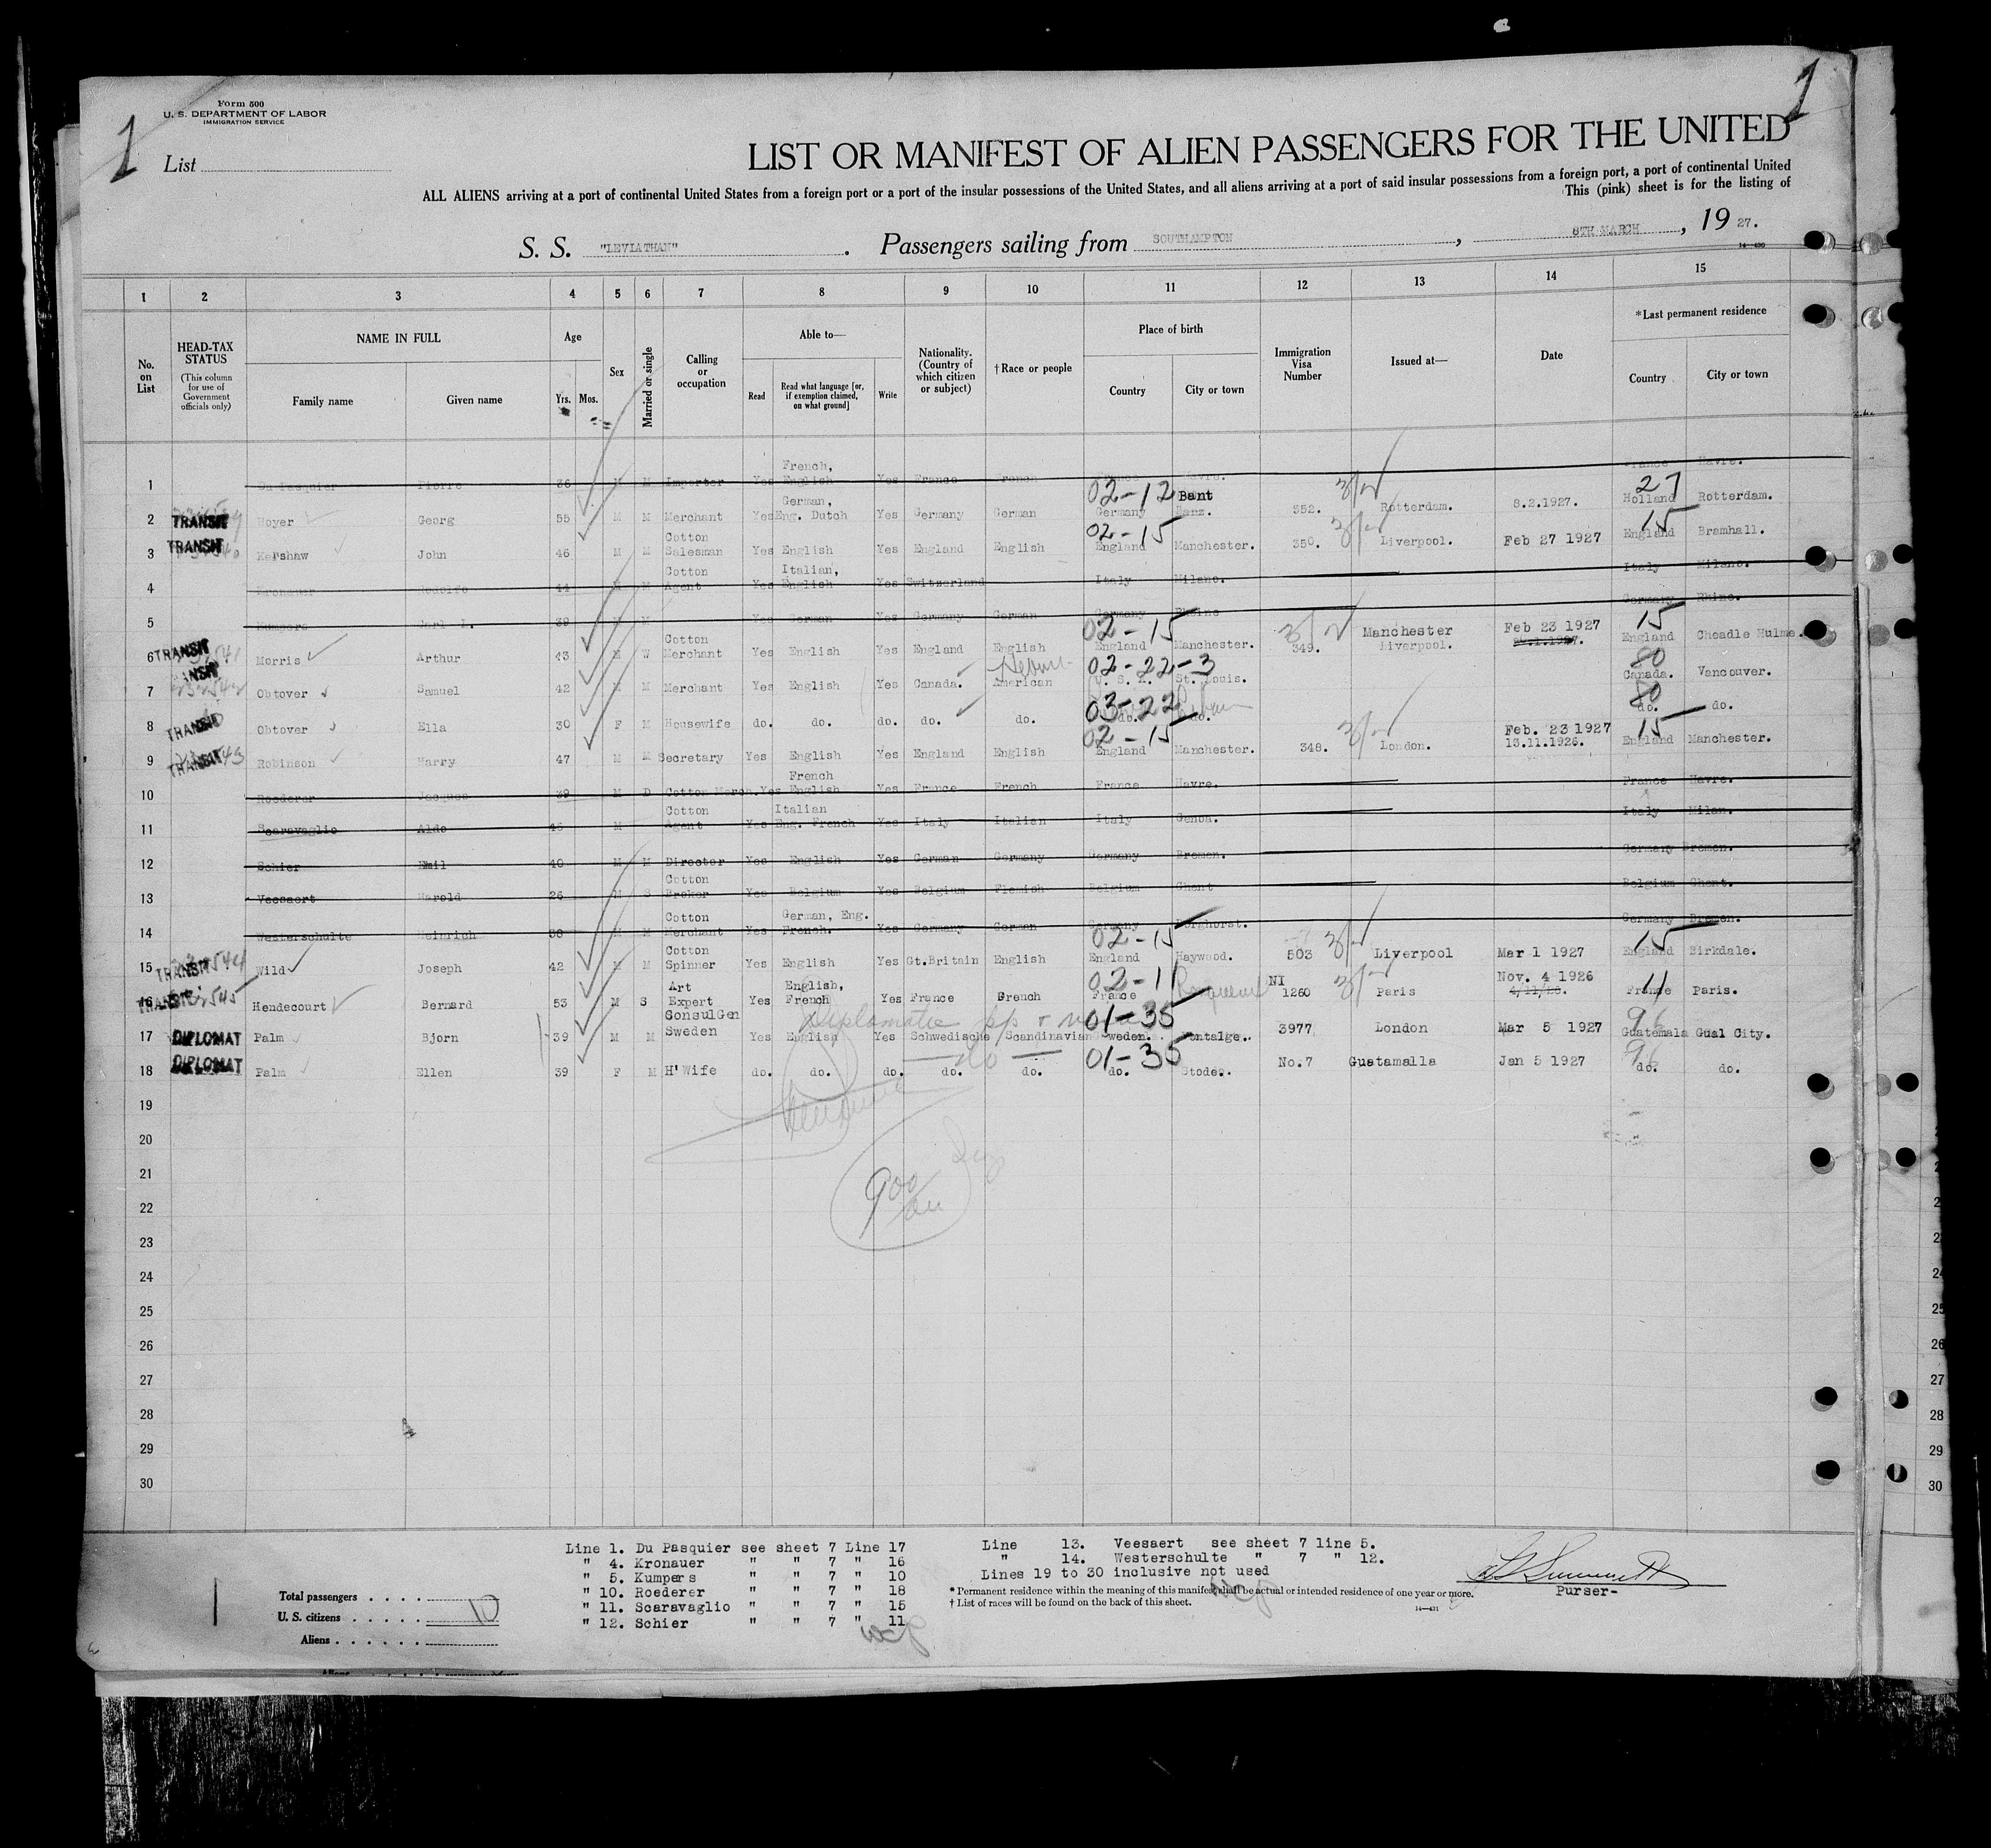 1
1
Form 500
U. S. DEPARTMENT OF LABOR
IMMIGRATION SERVICE
List
LIST OR MANIFEST OF ALIEN PASSENGERS FOR THE UNITED
ALL ALIENS arriving at a port of continental United States from a foreign port or a port of the insular possessions of the United States, and all aliens arriving at a port of said insular possessions from a foreign port, a port of continental United
This (pink) sheet is for the listing of
S. S. "LEVIATHAN". Passengers sailing from SOUTHAMPTON, 8TH MARCH, 19 27.
1 2 3 4 5 6 7 8 9 10 11 12 13 14 15
No. on List
HEAD-TAX STATUS (This column for use of Government officials only)
NAME IN FULL Family name Given name
Age Yrs. Mos.
Sex
Married or single
Calling or occupation
Able to— Read Read what language [or, if exemption claimed, on what ground] Write
Nationality. (Country of which citizen or subject)
†Race or people
Place of birth Country City or town
Immigration Visa Number
Issued at—
Date
*Last permanent residence Country City or town
1 Du Pasquier Pierre 36 M M Importer Yes French, English Yes France French France Havre. France Havre.
2 TRANSIT Hoyer Georg 55 M M Merchant Yes German, Eng. Dutch Yes Germany German 02-12 Germany Bant 352. Rotterdam. 8.2.1927. 27 Holland Rotterdam.
3 TRANSIT Kershaw John 46 M M Cotton Salesman Yes English Yes England English 02-15 England Manchester. 350. Liverpool. Feb 27 1927 15 England Bramhall.
4 Kronauer Rodolfo 44 M M Cotton Agent Yes Italian, English Yes Switzerland Italy Milano. Italy Milano.
5 Kumpers Carl L. 39 M M Yes German Yes Germany German Germany Rhine Germany Rhine.
6 TRANSIT Morris Arthur 43 M W Cotton Merchant Yes English Yes England English 02-15 England Manchester. 349. Manchester Liverpool. Feb 23 1927 15 England Cheadle Hulme.
7 Obtover Samuel 42 M M Merchant Yes English Yes Canada. American 02-22-3 U. S. A. St. Louis. 80 Canada. Vancouver.
8 TRANSIT Obtover Ella 30 F M Housewife do. do. do. do. do. 03-22 do. do. 80 do. do.
9 TRANSIT Robinson Harry 47 M M Secretary Yes English Yes England English 02-15 England Manchester. 348. London. Feb. 23 1927 13.11.1926. 15 England Manchester.
10 Roederer Jacques 39 M D Cotton Merch. Yes French English Yes France French France Havre. France Havre.
11 Scaravaglio Aldo 45 M Cotton Agent Yes Italian Eng. French Yes Italy Italian Italy Genoa. Italy Milan.
12 Schier Emil 40 M M Director Yes English Yes German Germany Germany Bremen. Germany Bremen.
13 Veesaert Harold 26 M S Cotton Broker Yes Belgium Yes Belgium Flemish Belgium Ghent Belgium Ghent.
14 Westerschulte Heinrich 38 M M Cotton Merchant Yes German, Eng. French. Yes Germany German Germany Germany Bremen.
15 TRANSIT Wild Joseph 42 M M Cotton Spinner Yes English Yes Gt.Britain English 02-15 England Haywood. 503 Liverpool Mar 1 1927 15 England Birkdale.
16 TRANSIT Hendecourt Bernard 53 M S Art Expert Yes English, French Yes France French 02-11 France NI 1260 Paris Nov. 4 1926 4/11/26. 11 France Paris.
17 DIPLOMAT Palm Bjorn 39 M M ConsulGen Sweden Yes English Yes Schwedische Scandinavian 01-35 Sweden. Montalge. 3977 London Mar 5 1927 96 Guatemala Gual City.
Diplomatic pp &
18 DIPLOMAT Palm Ellen 39 F M H'Wife do. do. do. do. do. 01-35 do. Stodes. No.7 Guatamalla Jan 5 1927 96 do. do.
do
19
20
21
22
23
24
25
26
27
28
29
30
Line 1. Du Pasquier see sheet 7 Line 17
" 4. Kronauer " " 7 " 16
" 5. Kumpers " " 7 " 10
" 10. Roederer " " 7 " 18
" 11. Scaravaglio " " 7 " 15
" 12. Schier " " 7 " 11
Line 13. Veesaert see sheet 7 line 5.
" 14. Westerschulte " 7 " 12.
Lines 19 to 30 inclusive not used
* Permanent residence within the meaning of this manifest shall be actual or intended residence of one year or more.
† List of races will be found on the back of this sheet.
14—431
Purser-
Total passengers
U. S. citizens 10
Aliens